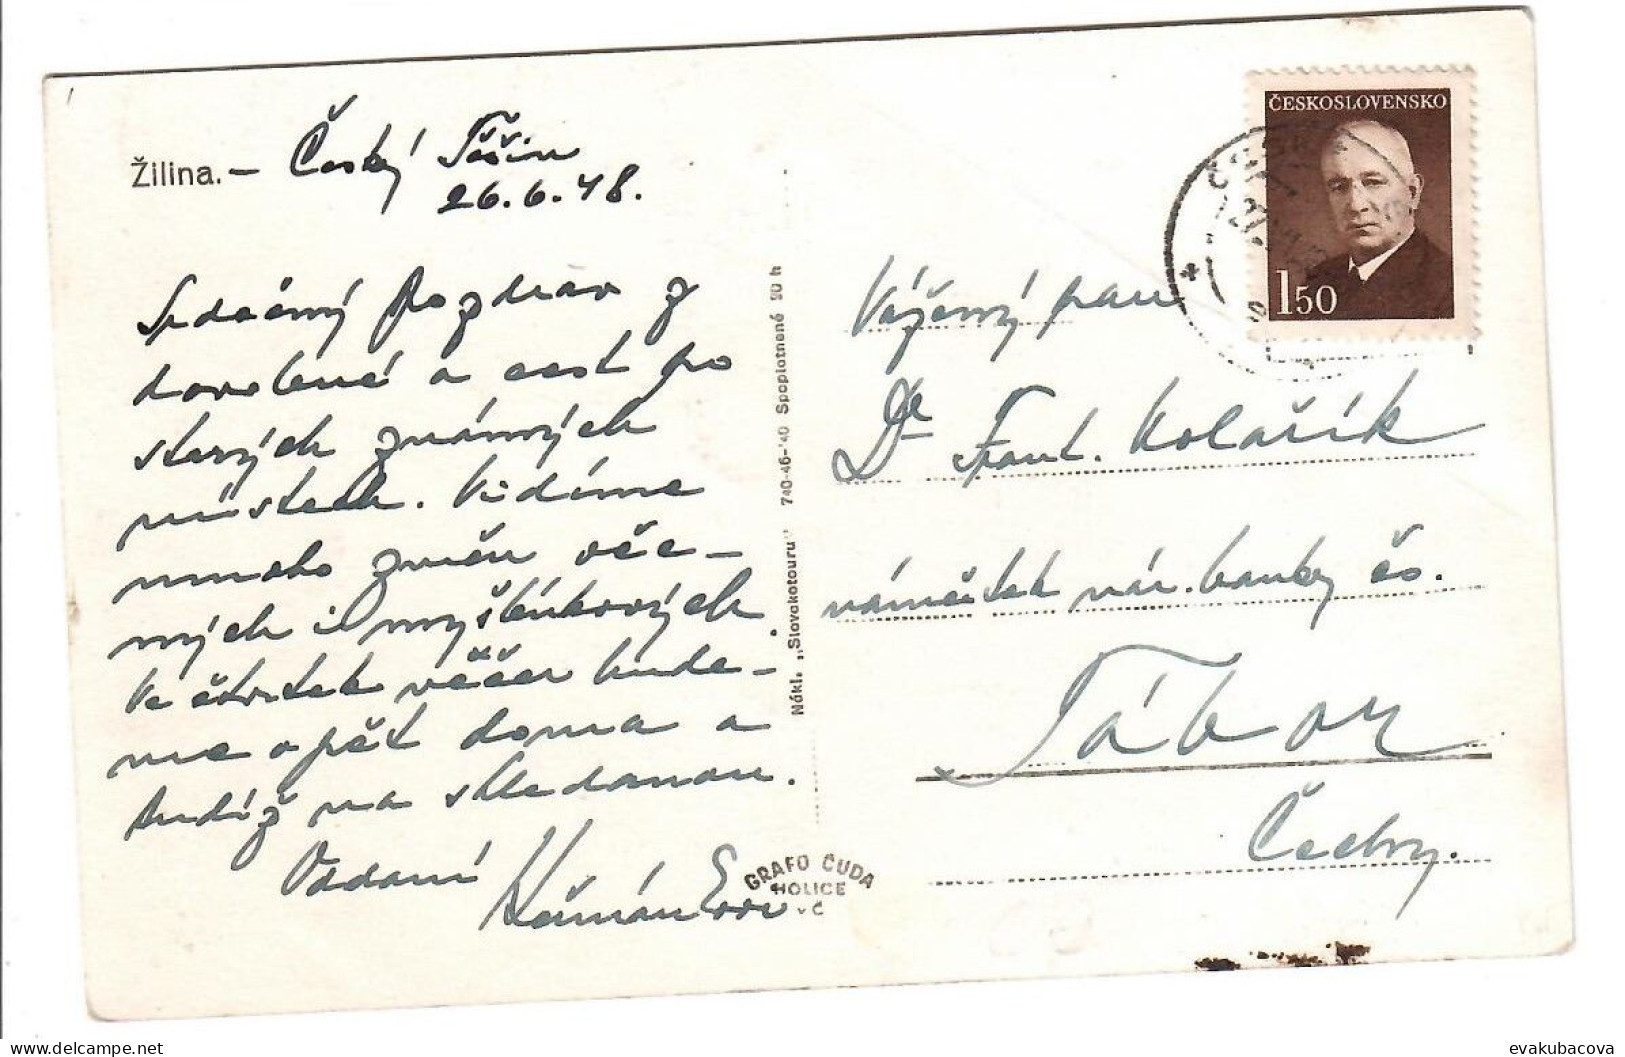 Žilina. — Český Těšín
26.6.48.
Srdečný pozdrav z
dovolené a cest po
starých známých
místech. Vidíme
mnoho změn věc-
ných i myšlenkových.
Ve čtvrtek večer bude-
me opět doma a
tudíž na shledanou.
Oddaní
Nákl. „Slovakotouru" 740-46-'40 Spoplatnené 50 h
GRAFO ČUDA
HOLICE
ČESKOSLOVENSKO
150
Vážený pan
Dr Frant. Kolařík
náměstek nár. banky čs.
Tábor
Čechy.
delcampe.net
evakubacova